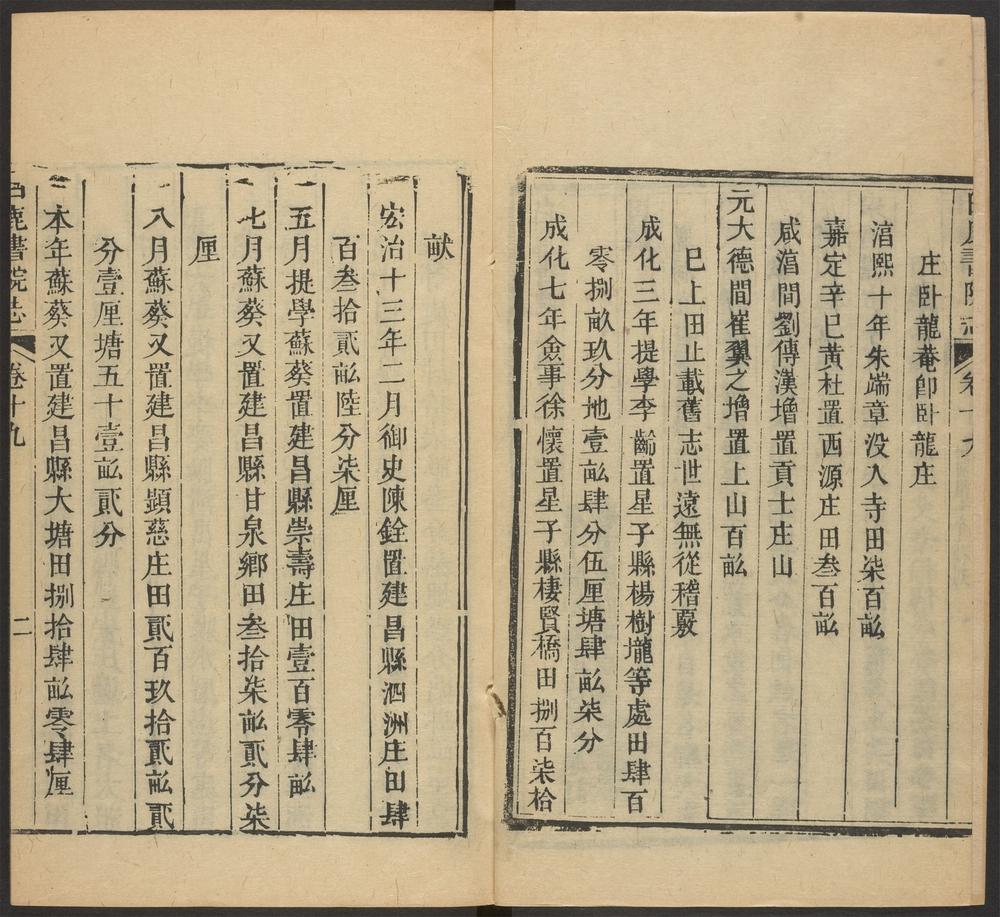 書院志
庄卧龍菴卽卧龍庄
淯熙十年朱端章没入寺田柒百畆
嘉定辛巳黃杜置西源庄田叁百畆
咸湻間劉傳漢增置貢士庄山
元大德間崔翼之增置上山百畆
巳上田止載舊志世遠無從稽覈
成化三年提學李齡置星子縣楊樹壠等處田肆百
零捌畝玖分地壹畆肆分伍厘塘肆畆柒分
成化七年僉事徐懷置星子縣棲賢橋田捌百柒拾
畝
一宏治十三年二月御史陳銓置建昌縣泗洲庄田肆
百叁拾貳畆陸分柒厘
一五月提學蘇葵置建昌縣崇壽庄田壹百零肆畆
一七月蘇葵又置建昌縣甘泉鄉田叁拾柒畆貳分柒
厘
一八月蘇葵又置建昌縣顯慈庄田貳百玖拾貳畆貳
分壹厘塘五十壹畆貳分
一本年蘇葵又置建昌縣大塘田捌拾肆畆零肆厘
白鹿書院志 卷十九 二